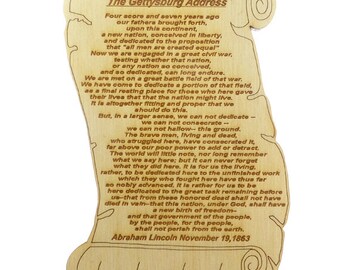 The Gettysburg Address
Four score and seven years ago
our fathers brought forth,
upon this continent,
a new nation, conceived in liberty,
and dedicated to the proposition
that "all men are created equal"
Now we are engaged in a great civil war,
testing whether that nation,
or any nation so conceived,
and so dedicated, can long endure.
We are met on a great battle field of that war.
We have come to dedicate a portion of that field,
as a final resting place for those who here gave
their lives that that nation might live.
It is altogether fitting and proper that we
should do this.
But, in a larger sense, we can not dedicate --
we can not consecrate --
we can not hallow-- this ground.
The brave men, living and dead,
who struggled here, have consecrated it,
far above our poor power to add or detract.
The world will little note, nor long remember
what we say here; but it can never forget
what they did here. It is for us the living,
rather, to be dedicated here to the unfinished work
which they who fought here have thus far
so nobly advanced. It is rather for us to be
here dedicated to the great task remaining before
us--that from these honored dead shall not have
died in vain--that this nation, under God, shall have
a new birth of freedom--
and that government of the people,
by the people, for the people,
shall not perish from the earth.
Abraham Lincoln November 19,1863